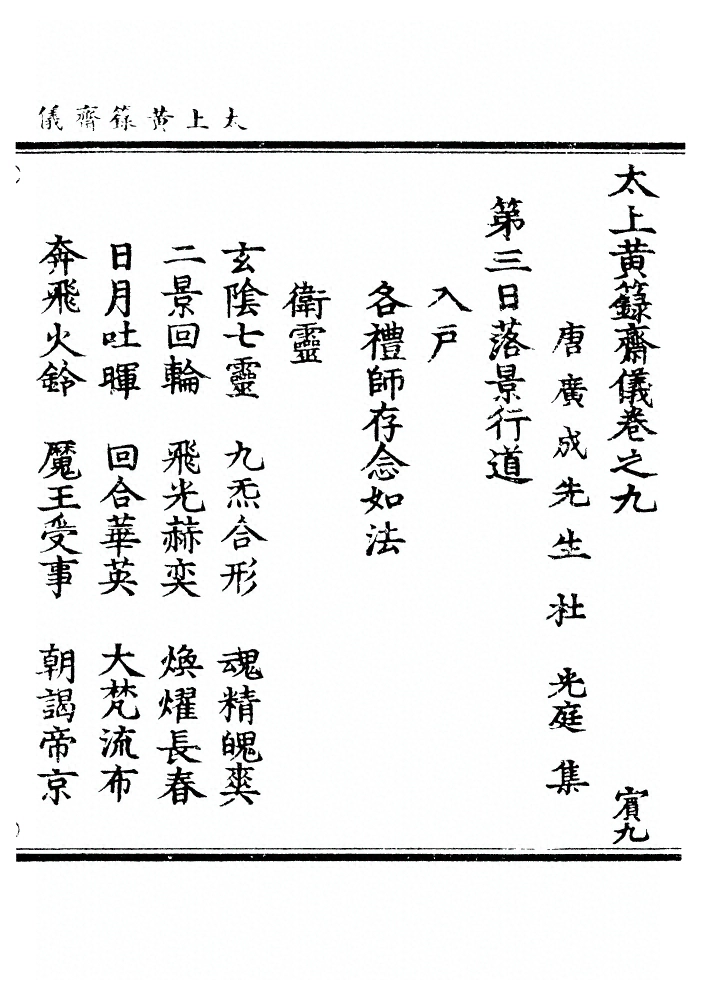 太上黃籙齋儀
太上黃籙齋儀卷之九 賓九
唐廣成先生杜光庭集
第三日落景行道
入戶
各禮師存念如法
衛靈
玄陰七靈 九炁合形 魂精魄爽
二景回輪 飛光赫奕 煥耀長春
日月吐暉 回合華英 大梵流布
奔飛火鈴 魔王受事 朝謁帝京